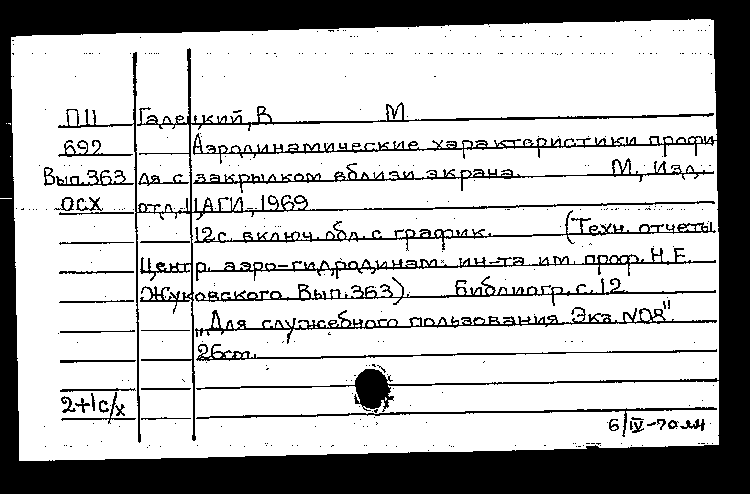 П11 Гадецкий, В М
692 Аэродинамические характеристики профи
Вып.363 ля с закрылком вблизи экрана. М., Изд.
ОСХ отд. ЦАГИ, 1969
12с. включ. обл. с график. (Техн. отчеты
Центр. аэро-гидродинам. ин-та им. проф. Н.Е.
Жуковского. Вып.363). Библиогр. с. 12
„Для служебного пользования Экз. №08"
26см.
2+1с/х
6/IV-70